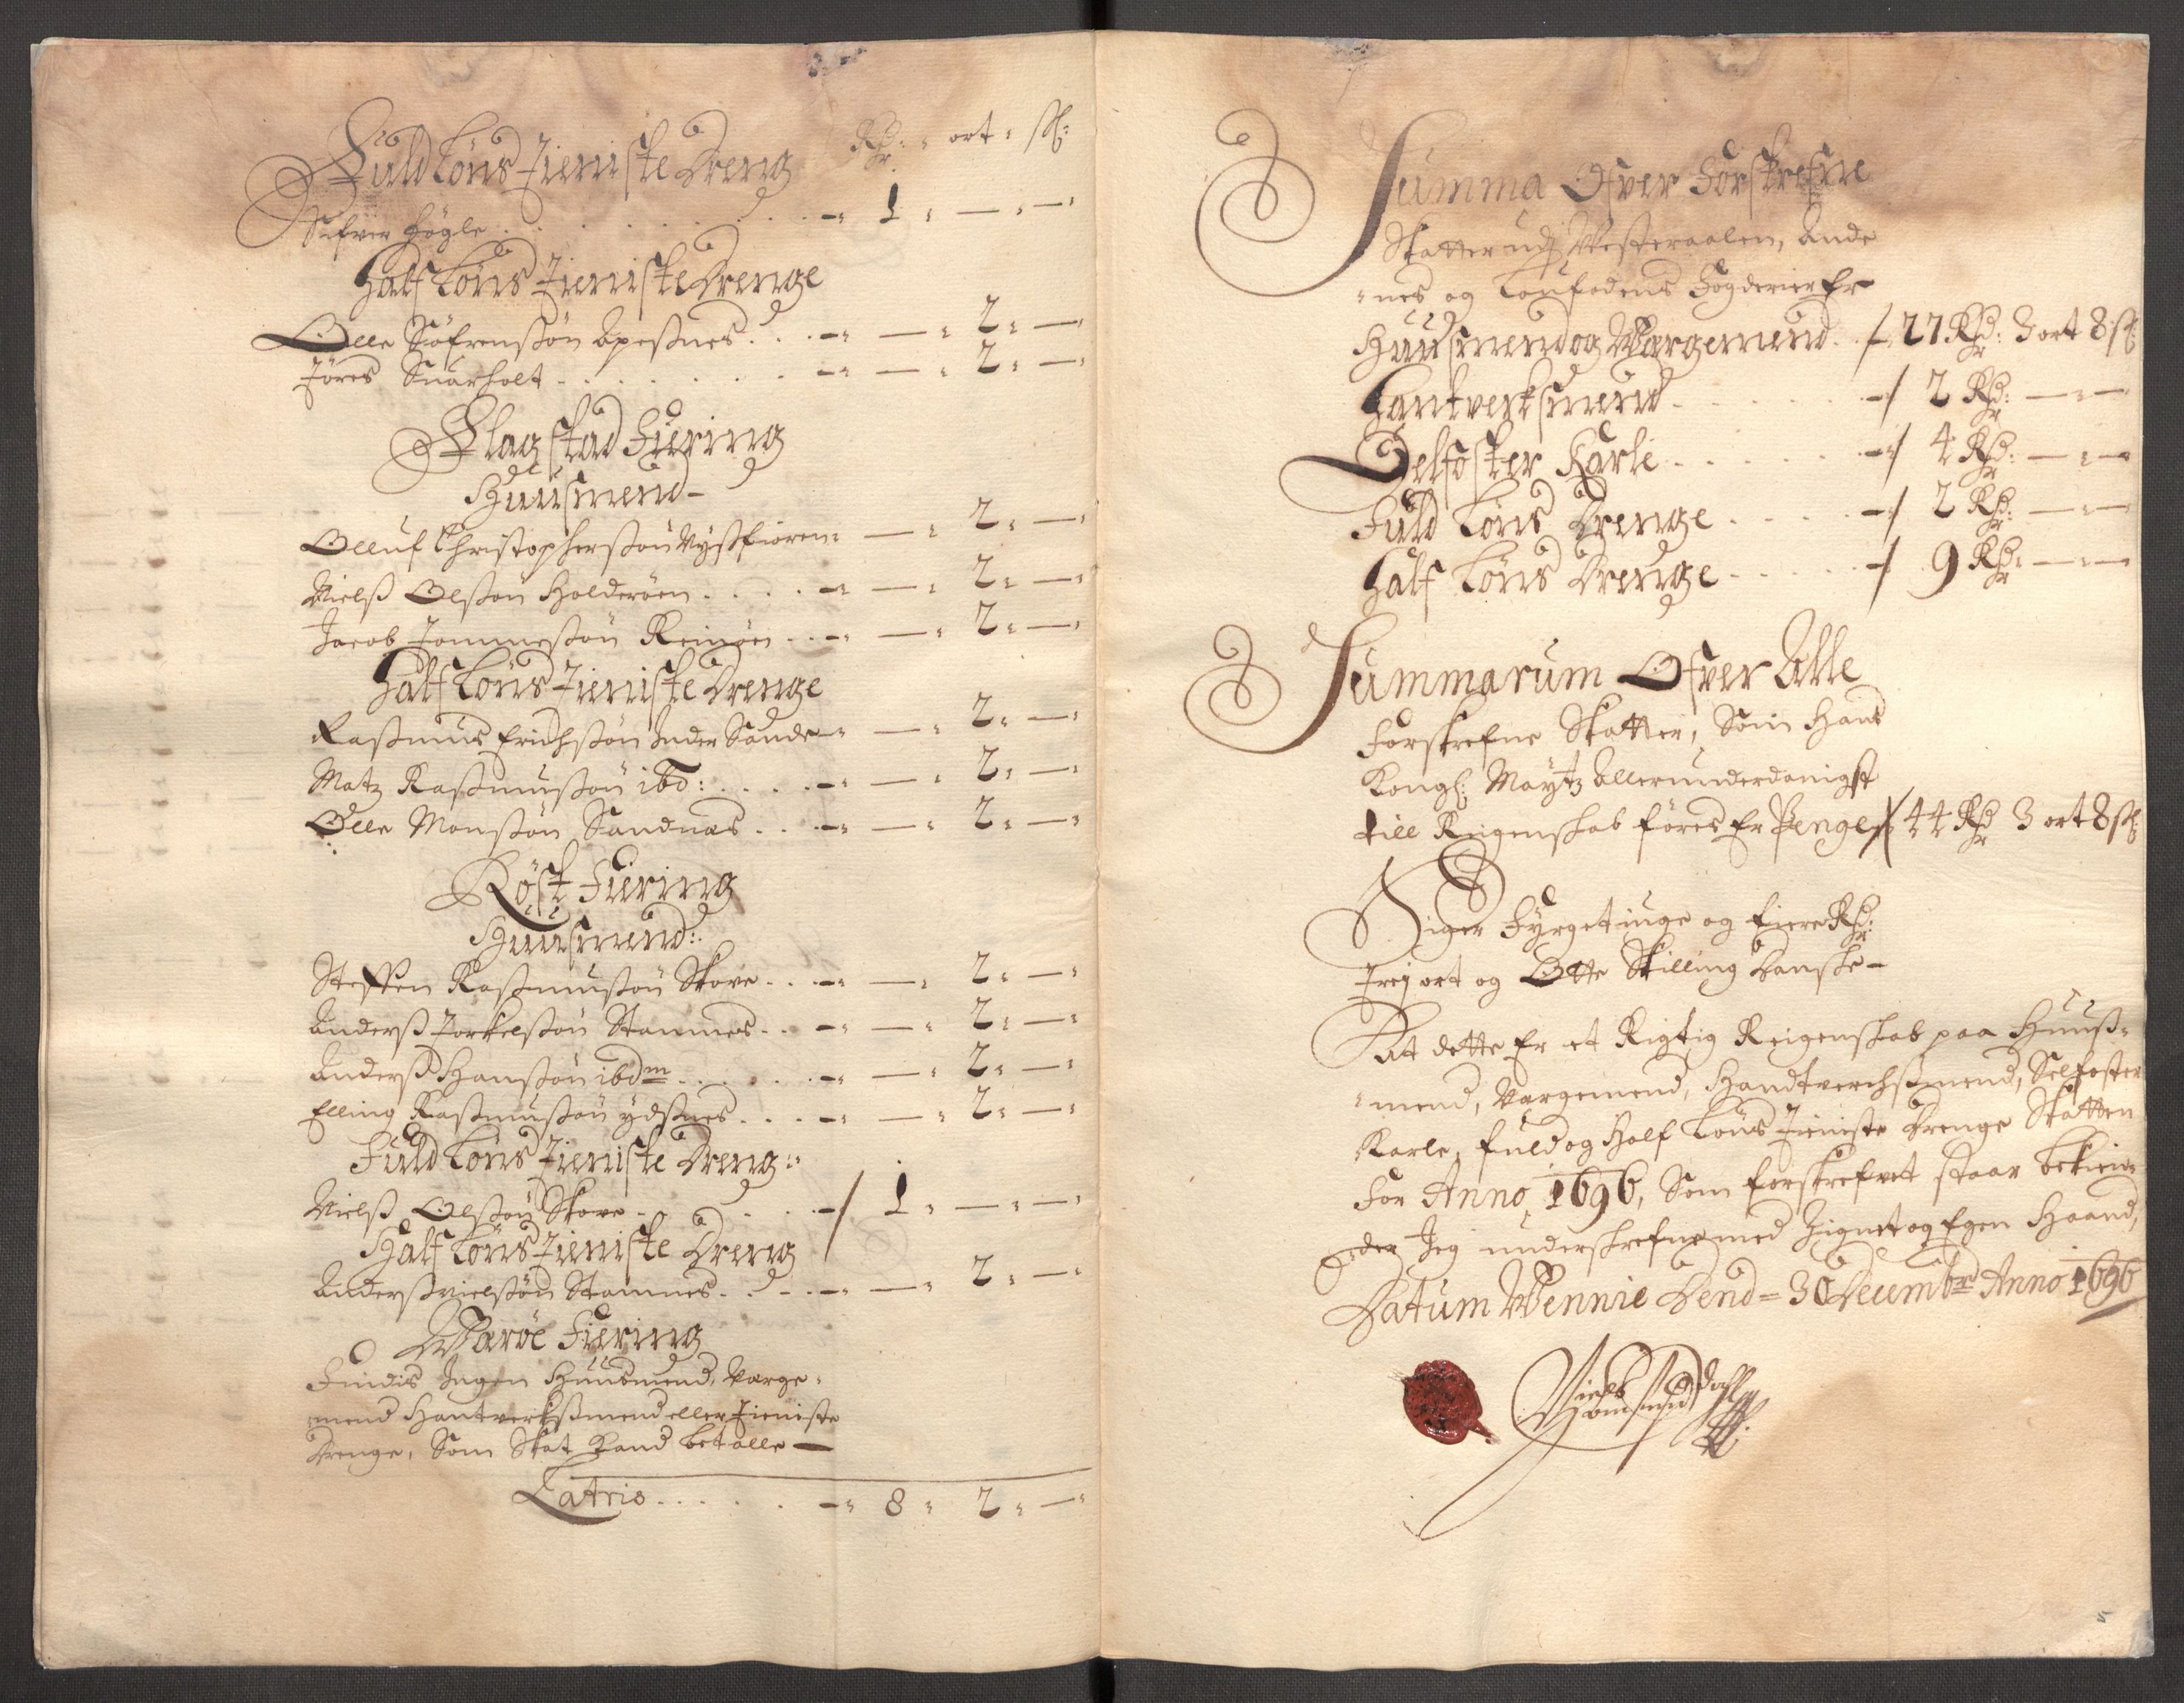 Fuld Løns Tieniste Dreng Rdr: ort: sk:
Sifver Høgle . . . . . . . -" 1 " — " — "
Half Løns Tieniste Drenge
Olle Søfrensøn Øpesnes . . . -" — " 2 " — "
Jøres Snarholt . . . . . . . -" — " 2 " — "
Flagstad Fiering
Huusmend -
Olluf Christophersøn Nysfioren " — " 2 " — "
Nielß Olsøn Holderøen . . . . -" — " 2 " — "
Jacob Tommesøn Reinøen . . -" — " 2 " — "
Half Løns Tieniste Drenge
Rasmus Erichsøn Inder Sunde -" — " 2 " — "
Matz Rasmusøn ibd: . . . . -" — " 2 " — "
Olle Monsøn Sandnæs . . . -" — " 2 " — "
Røst Fiering
Huusmend:
Steffen Rasmusøn Skove . . -" — " 2 " — "
Anders Torkelsøn Stannes . . -" — " 2 " — "
Anders Hansøn ibdm . . . . -" — " 2 " — "
Elling Rasmusøn Ydsnes . . . -" — " 2 " — "
Fuld Løns Tieniste Dreng:
Nielß Olsøn Skove . . . . . -/ 1 " — " — "
Half Løns Tieniste Dreng
Anders Nielsøn Stannes . . . -" — " 2 " — "
Warøe Fiering
Findis Ingen Huusmend, Varge-
mend Hantverksmend eller Tieniste
Drenge, Som Skat Kand betalle —
Latris . . . . . -" 8 " 2 " — "
Summa Ofver Forskrefne
Skatter udj Westeraalen, Ande
"nes og Loufodens Fogderier Er
Huusmend og Wargemend . / 27 Rdr: 3 ort 8 sk:
Hantverksmend . . . . . -/ 2 Rdr: — " —
Selfoster Karle . . . . . -/ 4 Rdr: — " —
Fuld Løns Drenge . . . . -/ 2 Rdr: — " —
Half Løns Drenge . . . . -/ 9 Rdr: — " —
Summarum Ofver Alle
Forskrefne Skatter, Som Hans
Kongl: Maytz Allerunderdanigst
till Reigenskab føres Er Penge / 44 Rdr 3 ort 8 sk:
Siger Fyrgetiuge og fiere Rdr:
Trej ort og Otte Skilling Danske -
At dette Er et Rigtig Reigenskab paa Huus-
"mend, Vargemend, Handtverchsmend, Selfoster
Karle, fuld og Half Løns Tieniste Drenge Skatten
For Anno 1696, Som forskrefvet staar bekien-
der Jeg underskrefne med Zignet og Egen Haand,
Datum Wennie Dend = 30 Decembr Anno 1696
Niels